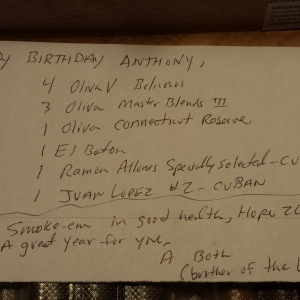 Y BIRTHDAY ANTHONY,
4 Oliva V Belicosos
3 Oliva Master Blends III
1 Oliva Connecticut Reserve
1 El Baton
1 Ramon Allones Specially Selected - CU
1 JUAN LOPEZ #2 - CUBAN
Smoke-em in good health, Hope 20
A great year for you,
A Both
(brother of the